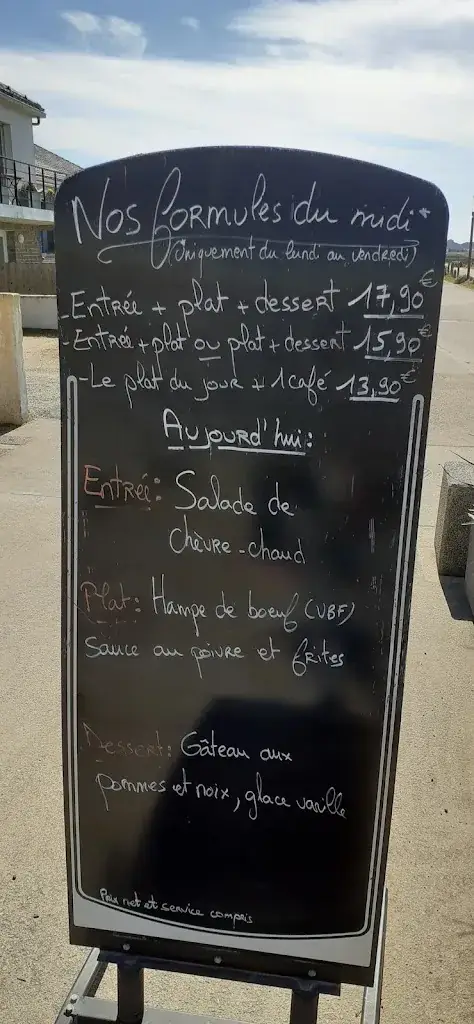 Nos formules du midi*
(Uniquement du lundi au vendredi)
-Entrée + plat + dessert 17,90€
-Entrée+plat ou plat+dessert 15,90€
-Le plat du jour + 1 café 13,90€
Aujourd'hui:
Entrée: Salade de
chèvre-chaud
Plat: Hampe de boeuf (VBF)
Sauce au poivre et frites
Dessert: Gâteau aux
pommes et noix, glace vanille
Prix net et service compris